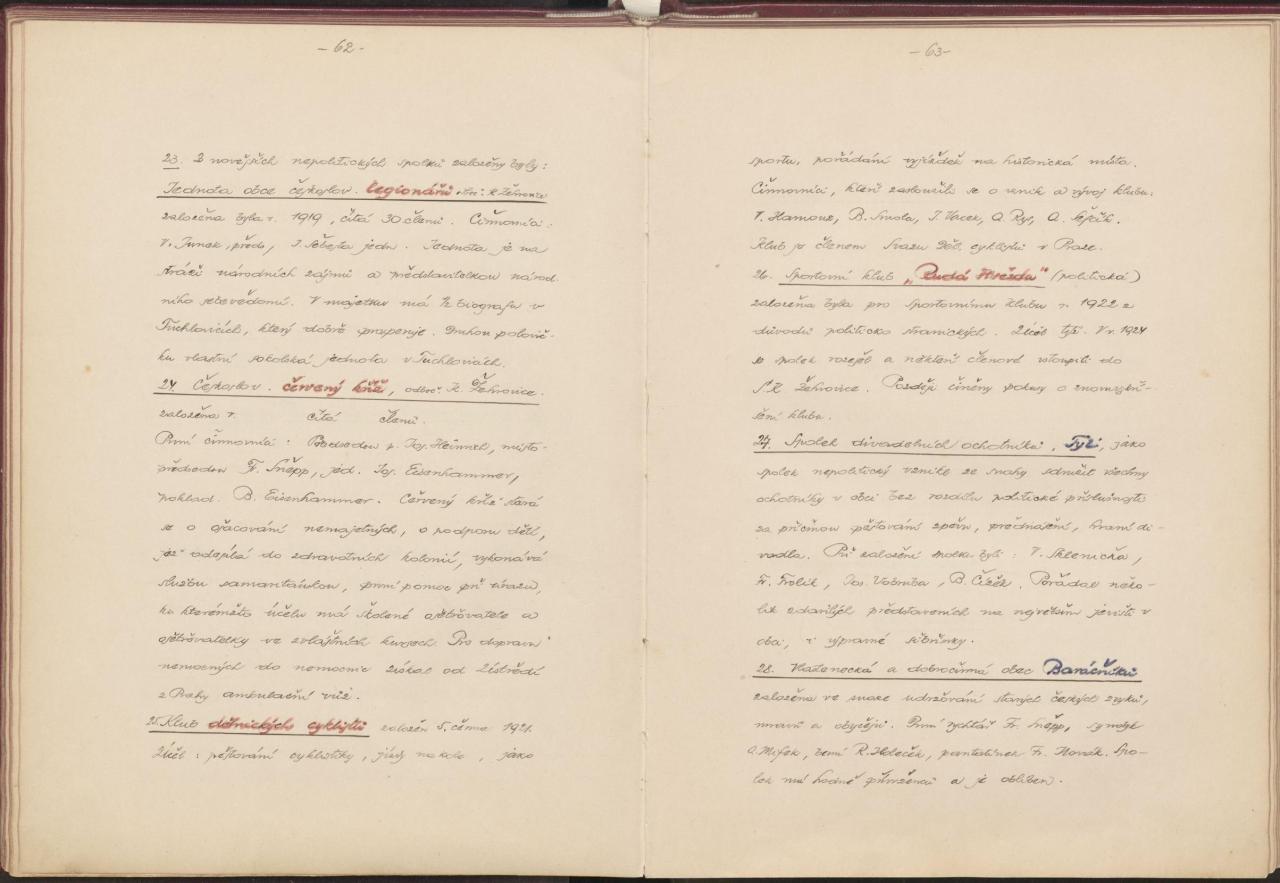 - 62 -
23. Z novějších nepolitických spolků založeny byly:
Jednota obce českoslov. legionářů, K. Žehrovice
založena byla r. 1919, čítá 30 členů. Činovníci:
V. Junek, předs., J. Šebesta jedn. Jednota je na
stráži národních zájmů a představitelkou národ-
ního sebevědomí. V majetku má ½ biografu v
Tuchlovicích, který dobře prosperuje. Druhou polovič-
ku vlastní sokolská jednota v Tuchlovicích.
24. Českoslov. červený kříž, odboč. K. Žehrovice.
založena r. čítá členů.
První činovníci: Předsedou p. Jos. Heinnch, místo-
předsedou Fr. Šnépp, jed. Jos. Eisenhammer,
poklad. B. Eisenhammer. Červený kříž stará
se o ošacování nemajetných, o podporu dětí,
jež odesílá do zdravotních kolonií, vykonává
službu samaritánskou, první pomoc při úrazu,
ku kterémuž účelu má školené ošetřovatele a
ošetřovatelky ve zvláštních kursech. Pro dopravu
nemocných do nemocnic získal od Ústředí
z Prahy ambulační vůz.
25. Klub dělnických cyklistů založen 5. června 1921.
Účel: pěstování cyklistiky, jízdy na kole, jako
- 63 -
sportu, pořádání vyjížděk na historická místa.
Činovníci, kteří zasloužili se o vznik a vývoj klubu:
V. Hamouz, B. Smola, J. Vacek, A. Rys, A. Šefčík.
Klub je členem Svazu Děl. cyklistů v Praze.
26. Sportovní klub „Rudá Hvězda" (politická)
založena byla pro Sportovnímu klubu r. 1922 z
důvodů politicko stranických. Účel týž. V r. 1924
se spolek rozešel a někteří členové vstoupili do
S.K. Žehrovice. Později činěny pokusy o znovuzkří-
šení klubu.
27. Spolek divadelních ochotníků, Tyl, jako
spolek nepolitický vznikl ze snahy sdružit všechny
ochotníky v obci bez rozdílu politické příslušnosti
za příčinou pěstování zpěvu, přednášení, hraní di-
vadla. Při založení spolku byli: V. Sklenička,
Fr. Frolík, Jos. Vošmba, B. Čížek. Pořádal něko-
lik zdařilých představeních na největším jevišti v
obci, i výpravné šibřinky.
28. Vlastenecká a dobročinná obec Baráčníků
založena ve snaze udržování starých českých zvyků,
mravů a obyčejů. První rychtář Fr. Šnépp, syndik
A. Mifek, berní R. Holeček, pantatínek Fr. Novák. Spo-
lek má hodně příznivců a je oblíben.